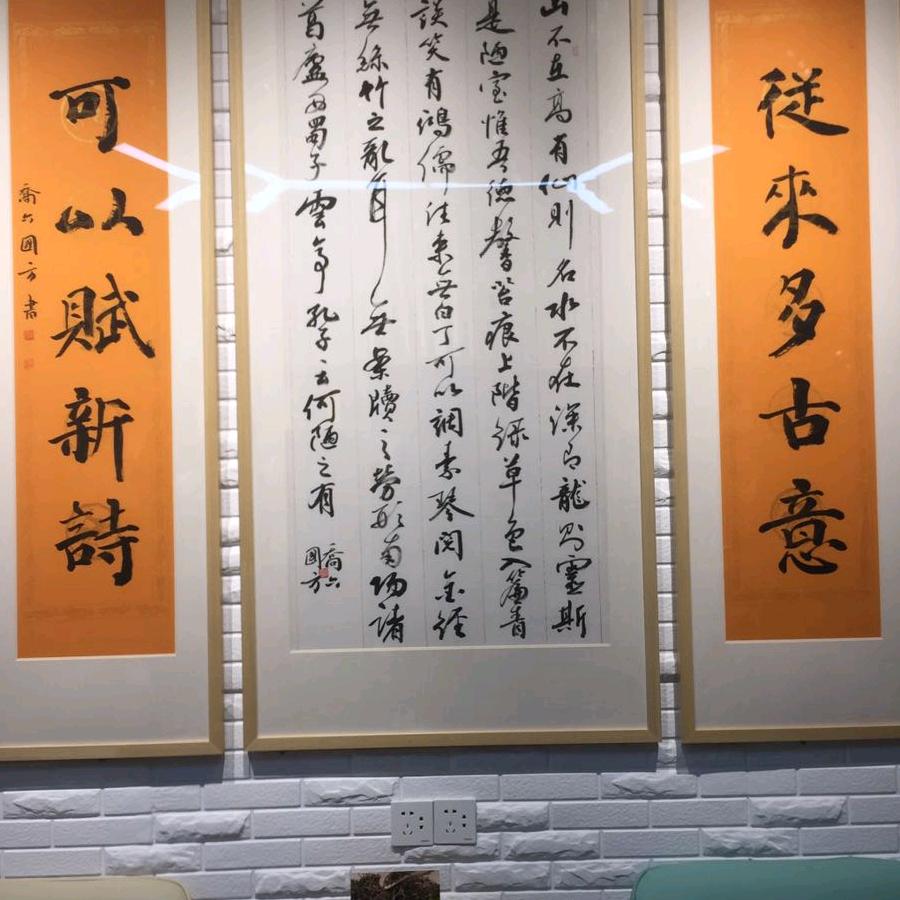 從來多古意
山不在高有仙則名水不在深有龍則靈斯
是陋室惟吾德馨苔痕上階綠草色入簾青
談笑有鴻儒往來無白丁可以調素琴閱金經
無絲竹之亂耳無案牘之勞形南陽諸
葛廬西蜀子雲亭孔子云何陋之有
喬六
國方
可以賦新詩
喬六國方書